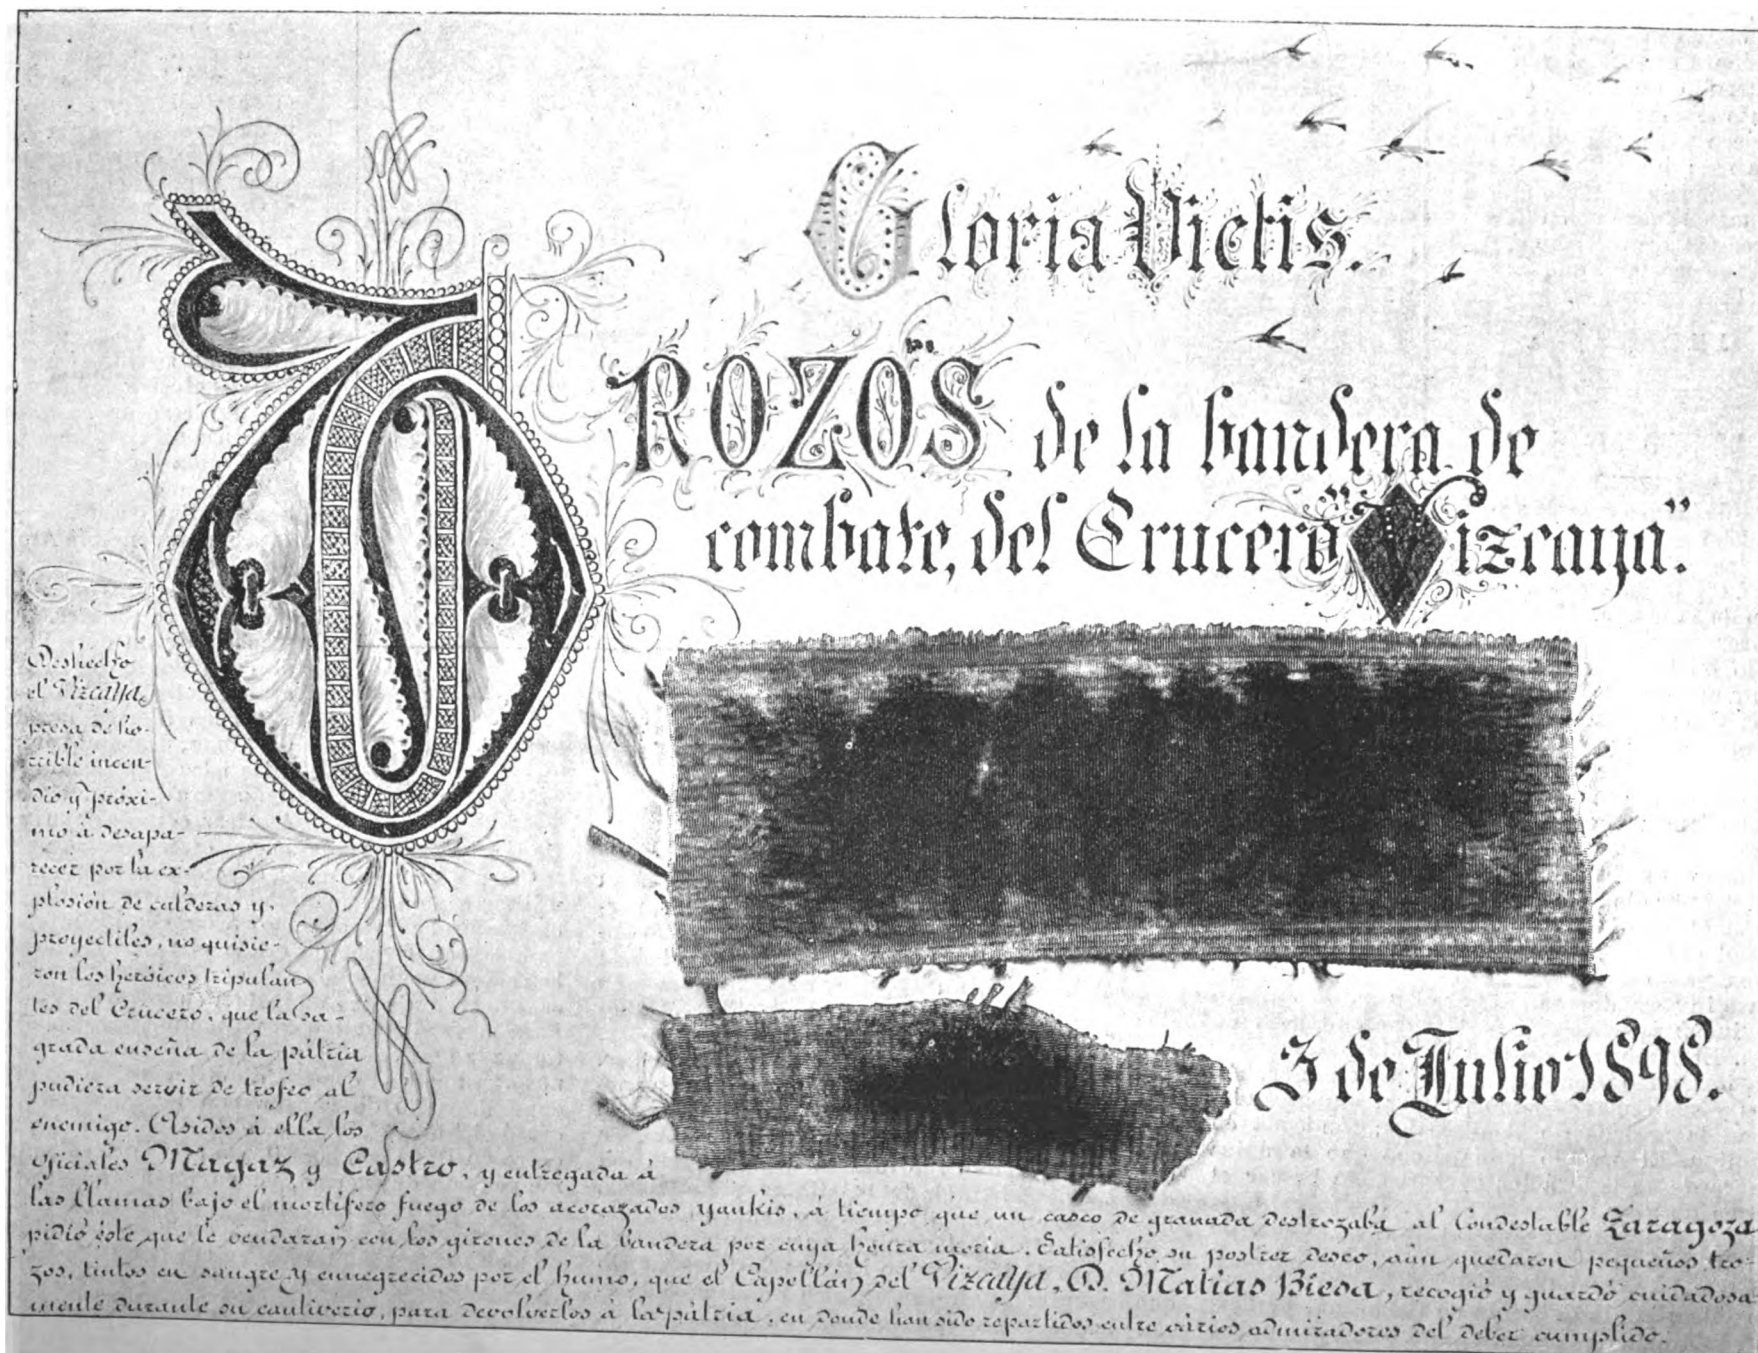 Gloria Victis.
TROZOS de la bandera de
combate, del Crucero "Vizcaya".
3 de Julio 1898.
Deshecho
el Vizcaya,
presa de ho-
rrible incen-
dio y próxi-
mo á desapa-
recer por la ex-
plosión de calderas y
proyectiles, no quisie-
ron los heróicos tripulan
tes del Crucero, que la sa-
grada enseña de la pátria
pudiera servir de trofeo al
enemigo. Asidos á ella los
oficiales Magaz y Castro, y entregada á
las llamas bajo el mortífero fuego de los acorazados yankis, á tiempo que un casco de granada destrozaba al Condestable Zaragoza
pidió éste que le vendaran con los girones de la bandera por cuya honra moría. Satisfecho su postrer deseo, aún quedaron pequeños tro-
zos, tintos en sangre y ennegrecidos por el humo, que el Capellán del Vizcaya, D. Matias Biesa, recogió y guardó cuidadosa-
mente durante su cautiverio, para devolverlos á la pátria, en donde han sido repartidos entre vários admiradores del deber cumplido.